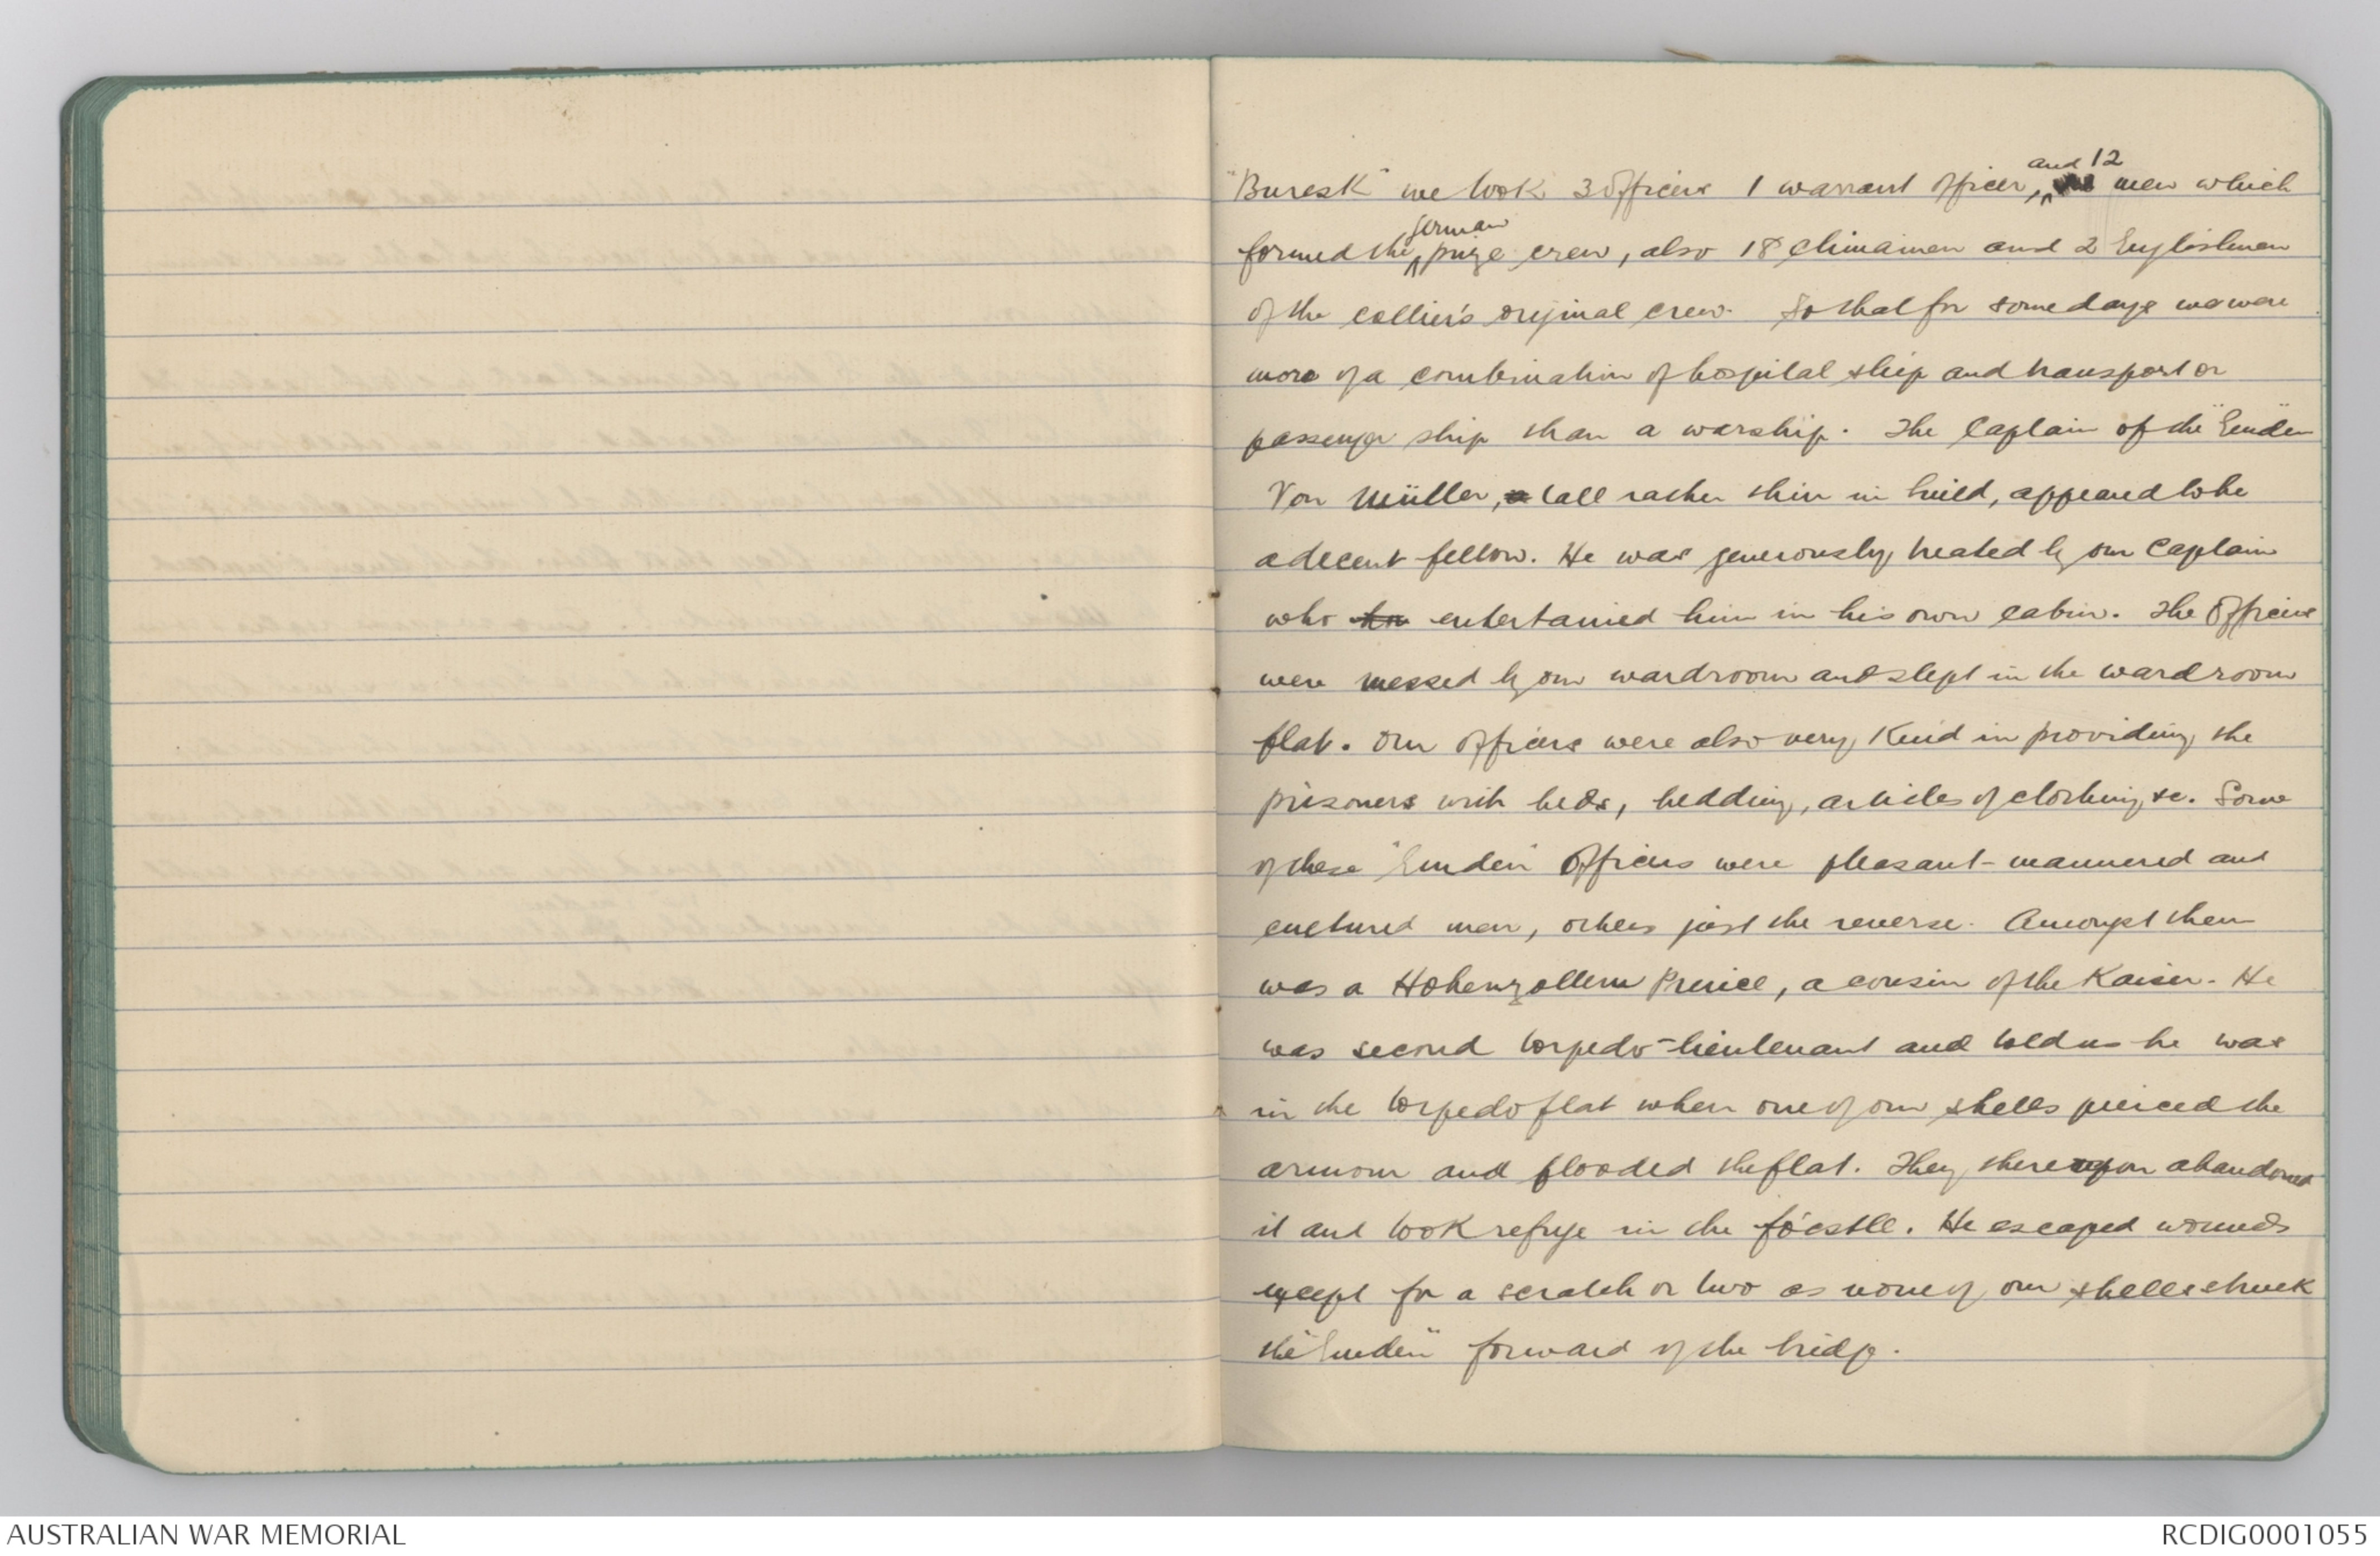 "Buresk" we took 3 Officers 1 warrant officer, and 12 men which
formed the german prize crew, also 18 Chinamen and 2 Englishmen
of the collier's original crew. So that for some days we were
more of a combination of hospital ship and transport or
passenger ship than a warship. The Captain of the "Emden"
Von Müller, tall rather thin in build, appeared to be
a decent fellow. He was generously treated by our Captain
who entertained him in his own cabin. The Officers
were messed by our wardroom and slept in the wardroom
flat. Our Officers were also very kind in providing the
prisoners with beds, bedding, articles of clothing, &c. Some
of these "Emden" Officers were pleasant-mannered and
cultured men, others just the reverse. Amongst them
was a Hohenzollern Prince, a cousin of the Kaiser. He
was second torpedo-lieutenant and told us he was
in the torpedo flat when one of our shells pierced the
armour and flooded the flat. They thereupon abandoned
it and took refuge in the fo'cstle. He escaped wounds
except for a scratch or two as none of our shells struck
the "Emden" forward of the bridge.
AUSTRALIAN WAR MEMORIAL
RCDIG0001055